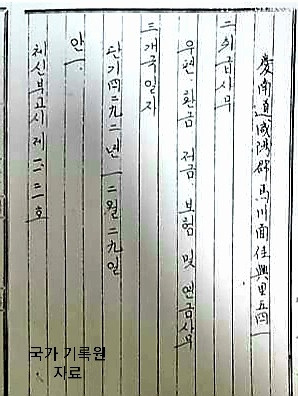 慶南道 咸陽郡 馬川面 佳興里 五四
二. 취급사무
우편 환금 저금 보험 및 연금사무
三. 개국일자
단기 四二九二년 一二월 二九일
안
체신부고시 제 一二二一호
국가 기록원
자료